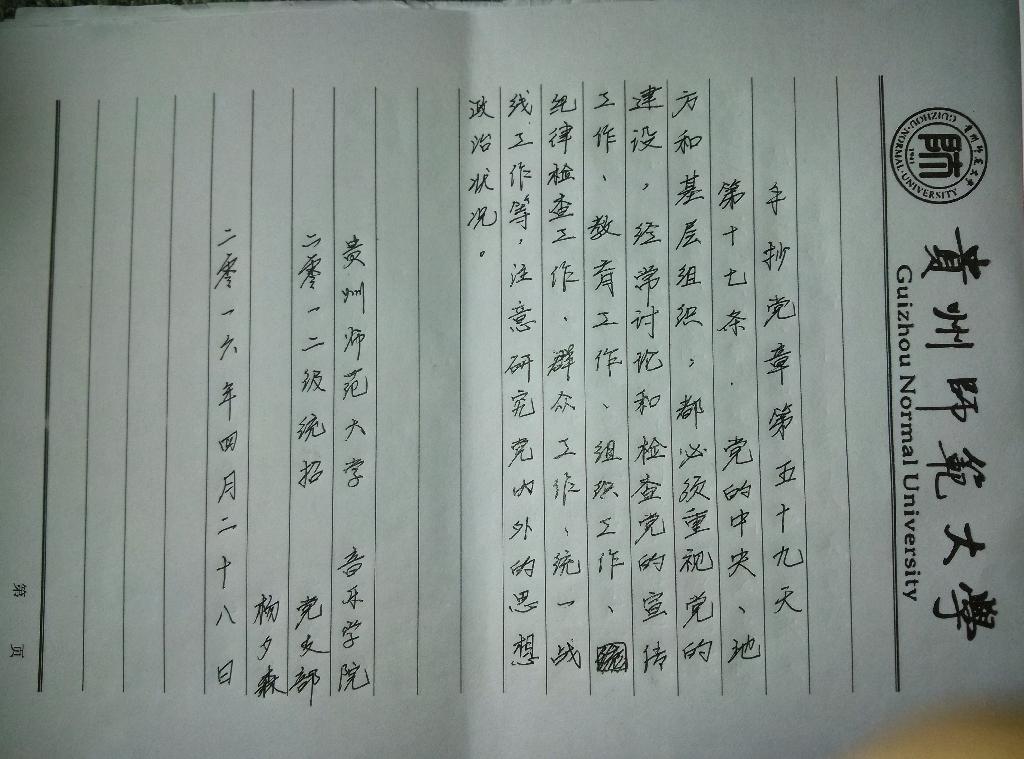 貴州師範大學
Guizhou Normal University
貴州師范大學
GUIZHOU·NORMAL·UNIVERSITY
1941
師
手抄党章第五十九天
第十七条. 党的中央、地
方和基层组织，都必须重视党的
建设，经常讨论和检查党的宣传
工作、教育工作、组织工作、
纪律检查工作、群众工作、统一战
线工作等，注意研究党内外的思想
政治状况。
贵州师范大学 音乐学院
二零一二级统招 党支部
杨夕森
二零一六年四月二十八日
第 页